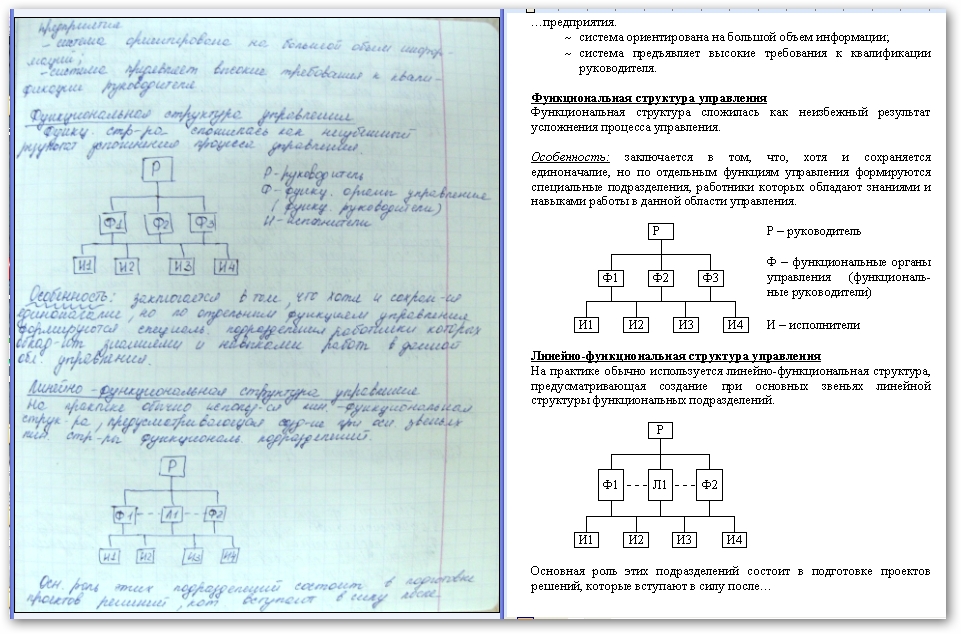 предприятия
- система ориентирована на большой объем инфор-
мации;
- система предъявляет высокие требования к квали-
фикации руководителя
Функциональная структура управления
Функц. стр-ра сложилась как неизбежный
результат усложнения процесса управления.
Р
Р - руководитель
Ф - функц. органы управления
(функц. руководители)
И - исполнители
Ф1 Ф2 Ф3
И1 И2 И3 И4
Особенность: заключается в том, что хотя и сохран-ся
единоначалие, но по отдельным функциям управления
формируются специаль. подразделения работники которых
облад-ют знаниями и навыками работ в данной
обл. управления.
Линейно-функциональная структура управления
На практике обычно использ-ся лин.-функциональная
струк-ра, предусматривающая созд-ие при осн. звеньях
лин. стр-ры функциональ. подразделений.
Р
Ф1 - - - Л1 - - - Ф2
И1 И2 И3 И4
Осн. роль этих подразделений состоит в подготовке
проектов решений, кот. вступают в силу после
…предприятия.
~ система ориентирована на большой объем информации;
~ система предъявляет высокие требования к квалификации
руководителя.
Функциональная структура управления
Функциональная структура сложилась как неизбежный результат
усложнения процесса управления.
Особенность: заключается в том, что, хотя и сохраняется
единоначалие, но по отдельным функциям управления формируются
специальные подразделения, работники которых обладают знаниями и
навыками работы в данной области управления.
Р
Р – руководитель
Ф – функциональные органы
управления (функциональ-
ные руководители)
Ф1 Ф2 Ф3
И1 И2 И3 И4
И – исполнители
Линейно-функциональная структура управления
На практике обычно используется линейно-функциональная структура,
предусматривающая создание при основных звеньях линейной
структуры функциональных подразделений.
Р
Ф1 - - - Л1 - - - Ф2
И1 И2 И3 И4
Основная роль этих подразделений состоит в подготовке проектов
решений, которые вступают в силу после…